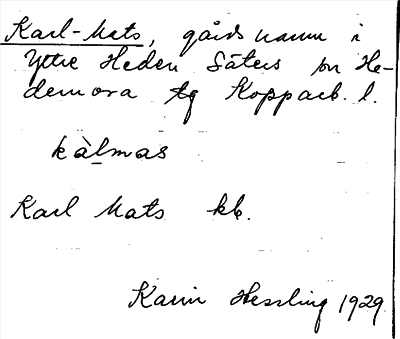 Karl-Mats, gårdsnamn i
Yttre Heden Säters sn He-
demora tg Kopparb. l.
kàlmas
Karl Mats kb.
Karin Hessling 1929